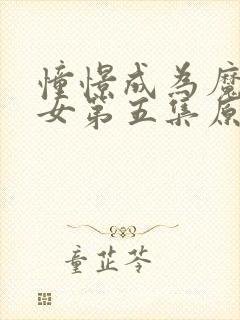 憧憬成为魔
女第五集原
童芷苓